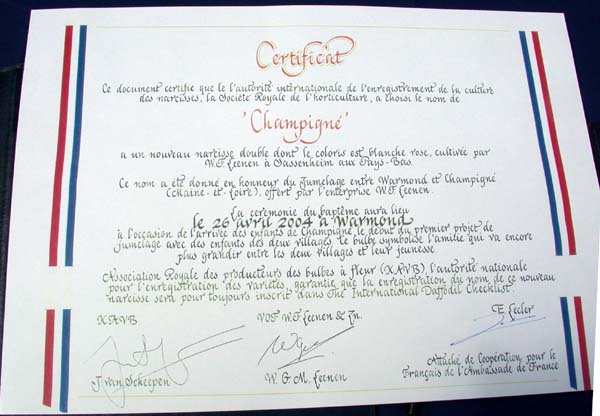 Certificat
Ce document certifie que le l'autorité internationale de l'enregistrement de la culture
des narcisses, la Société Royale de l'horticulture, a choisi le nom de
'Champigné'
a un nouveau narcisse double dont le coloris est blanche rose, cultivée par
W.F. Leenen à Sassenheim aux Pays-Bas.
Ce nom a été donné en honneur du Jumelage entre Warmond et Champigné
(Maine-et-Loire), offert par l'enterprise W.F. Leenen.
La ceremonie du baptême aura lieu
le 26 avril 2004 à Warmond
à l'occasion de l'arrivée des enfants de Champigné, le début du premier projet de
jumelage avec des enfants des deux villages, le bulbe symbolise l'amitie qui va encore
plus grandir entre les deux villages et leur jeunesse.
Association Royale des producteurs des bulbes à fleur (KAVB), l'autorité nationale
pour l'enregistration des varietés, garantie que la enregistration du nom de ce nouveau
narcisse sera pour toujours inscrit dans The International Daffodil Checklist.
KAVB VOF W.F. Leenen & Zn. E. Lecler
J. van Scheepen W.G.M. Leenen Attaché de Coopération pour le
Français de l'Ambassade de France